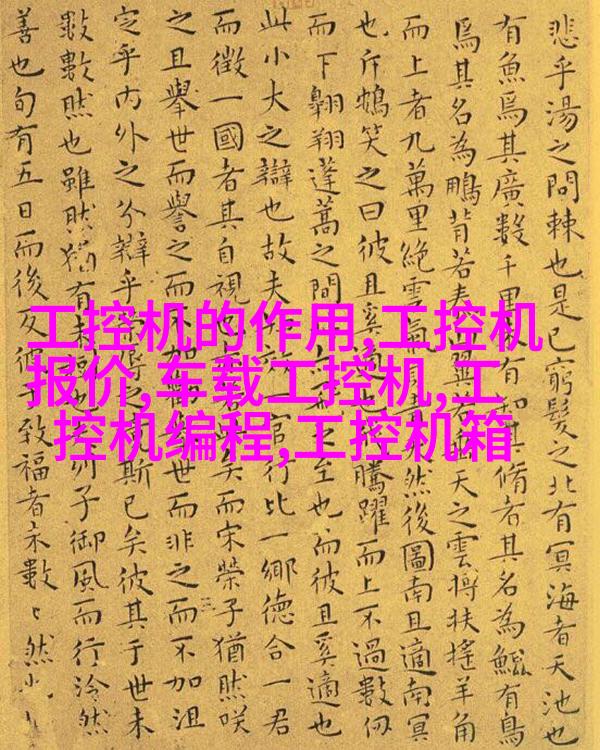 悲乎湯之問棘也是已窮髮之北有冥海者天池也
有魚焉其廣數千里有知其脩者其名為鯤有鳥
焉其名為鵬背若泰翼若天之雲摶扶搖羊角
而上者九萬里絕雲氣然後圖南且適南冥
也斥鴳笑之曰彼且奚適也騰躍而上不過數仞
而下翱翔蓬蒿之間之至也而彼且奚適也
此小大之辯也故夫知效一官行比一鄉德合一君
而徵一國者其自視也矣而宋榮子猶然咲
之且舉世而譽之而不加世而非之而不加沮
定乎內外之分辯乎榮辱之斯已矣彼其于世未
數數然也雖然猶有未也列子御風而行泠然
善也旬有五日而後反彼于致福者未數〻然
工控机的作用,工控机
报价,车载工控机,工
控机编程,工控机箱